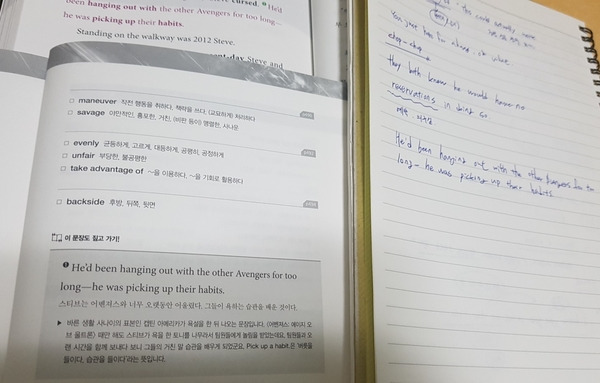 cursed. ❶He'd
been hanging out with the other Avengers for too long—
he was picking up their habits.
Standing on the walkway was 2012 Steve.
Steve and
maneuver 작전 행동을 취하다, 책략을 쓰다, (교묘하게) 처리하다
savage 야만적인, 흉포한, 거친, (비판 등이) 맹렬한, 사나운
evenly 균등하게, 고르게, 대등하게, 공평히, 공정하게
unfair 부당한, 불공평한
take advantage of ~을 이용하다, ~을 기회로 활용하다
backside 후방, 뒤쪽, 뒷면
이 문장도 짚고 가기!
❶ He'd been hanging out with the other Avengers for too
long—he was picking up their habits.
스티브는 어벤져스와 너무 오랫동안 어울렸다. 그들이 욕하는 습관을 배운 것이다.
▶ 바른 생활 사나이의 표본인 캡틴 아메리카가 욕설을 한 뒤 나오는 문장입니다. 〈어벤져스: 에이지 오
브 울트론〉 때만 해도 스티브가 욕을 한 토니를 나무라서 팀원들에게 놀림을 받았는데요. 팀원들과 오
랜 시간을 함께 보내다 보니 그들의 거친 말 습관을 배우게 되었군요. Pick up a habit.은 '버릇을
들이다, 습관을 들이다'라는 뜻입니다.
You just
chop-chop
they both know he would have no
reservations in doing so
He'd been hanging out with the other Avengers for too
long - he was picking up their habits